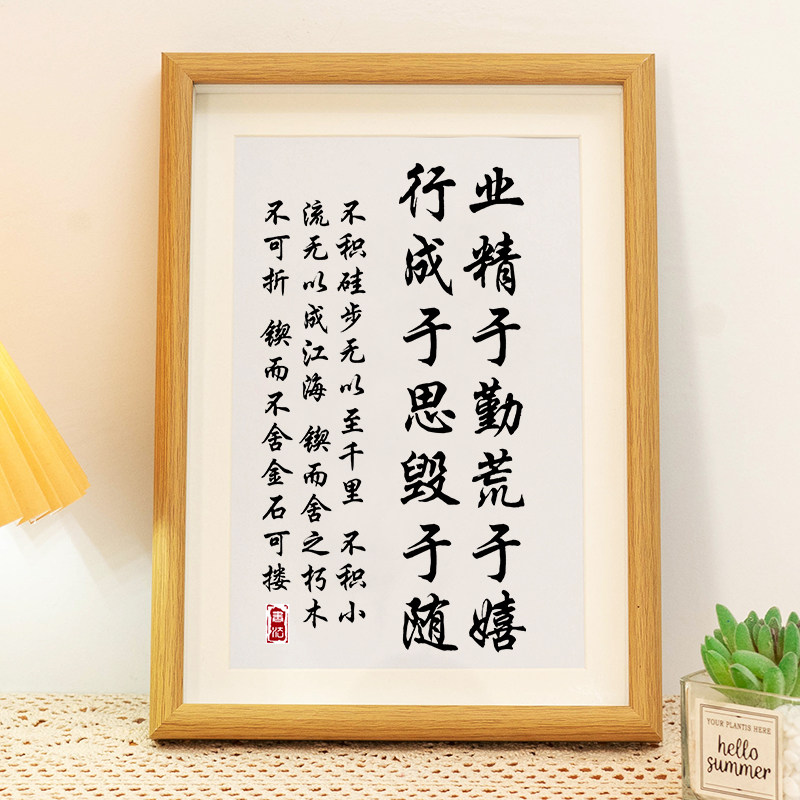 业精于勤荒于嬉
行成于思毁于随
不积硅步无以至千里 不积小
流无以成江海 锲而舍之朽木
不可折 锲而不舍金石可搂
書法
YOUR PLANTIS HERE
hello
summer